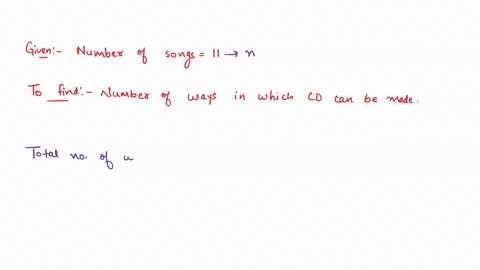 Given:- Number of songs = 11 → n
To find:- Number of ways in which CD can be made.
Total no. of